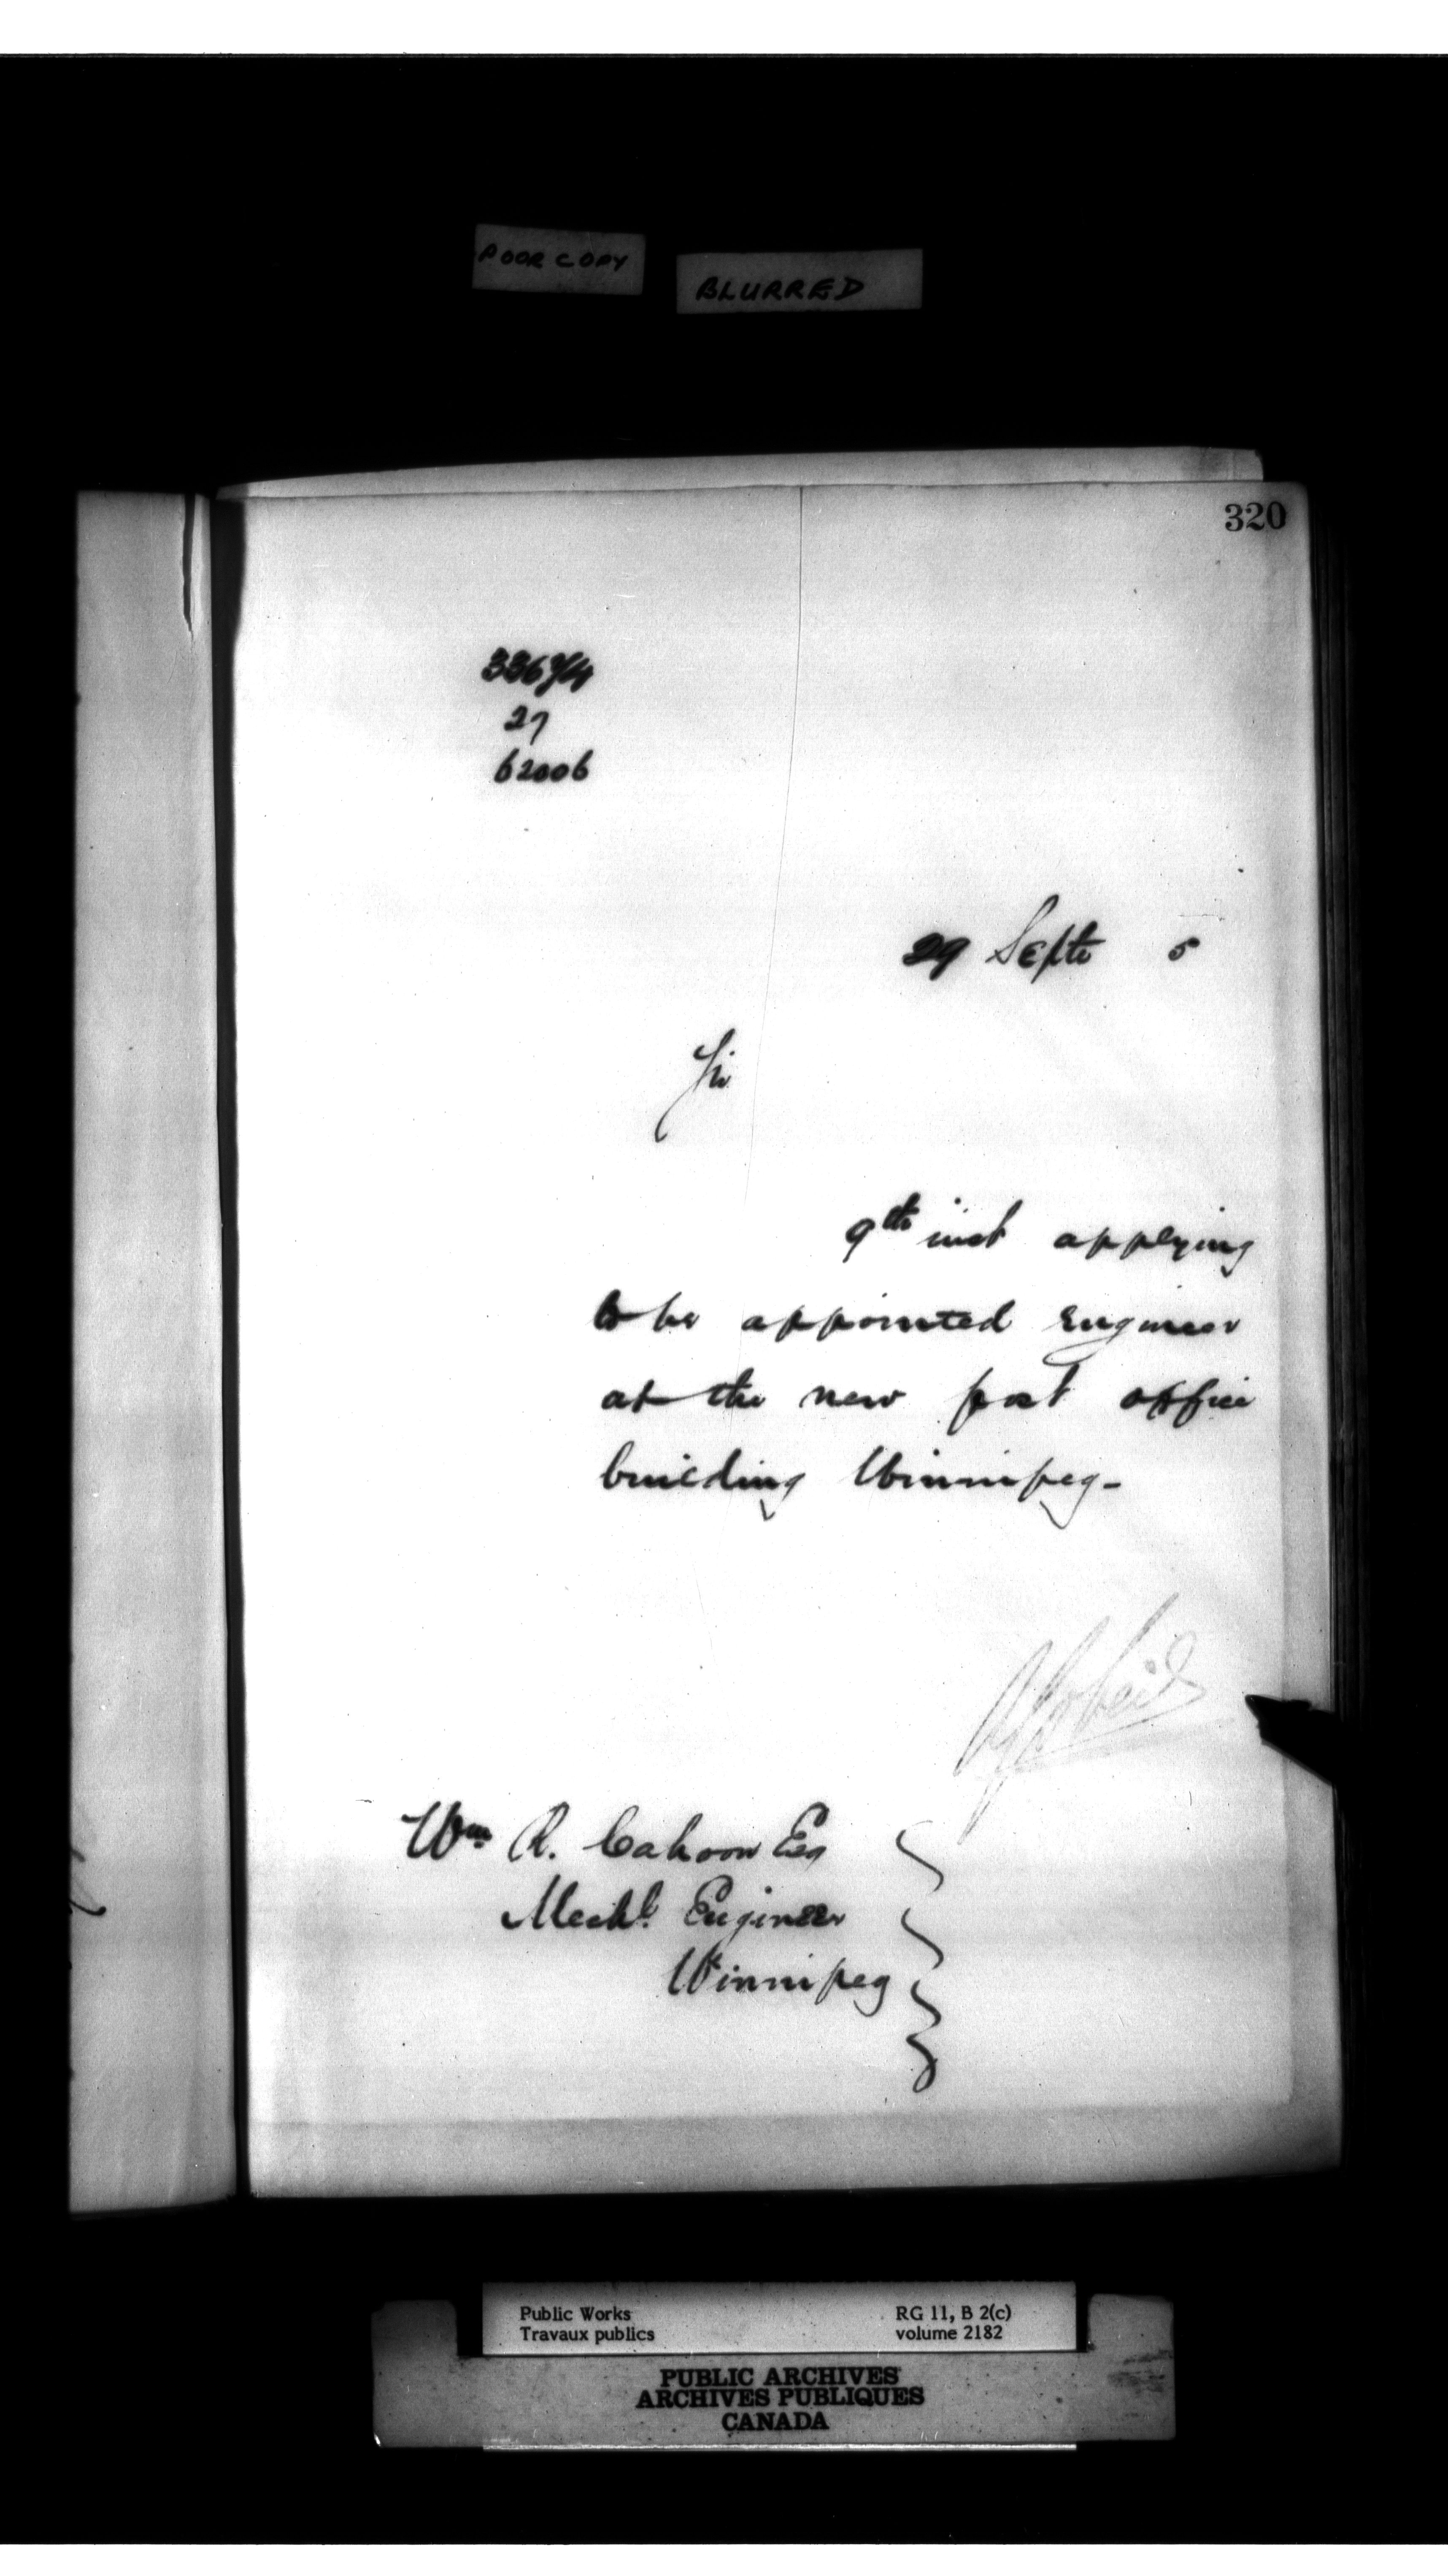 POOR COPY
BLURRED
320
27
62006
29 Septr 5
Sir
9th inst applying
to be appointed Engineer
at the new post office
building Winnipeg -
Wm R. Cahoon Esq
Mechl Engineer
Winnipeg
Public Works
Travaux publics
RG 11, B 2(c)
volume 2182
PUBLIC ARCHIVES
ARCHIVES PUBLIQUES
CANADA